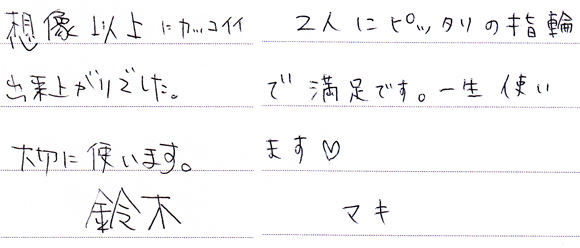 想像以上にカッコイイ
出来上がりでした。
大切に使います。
鈴木
2人にピッタリの指輪
で満足です。一生使い
ます♡
マキ